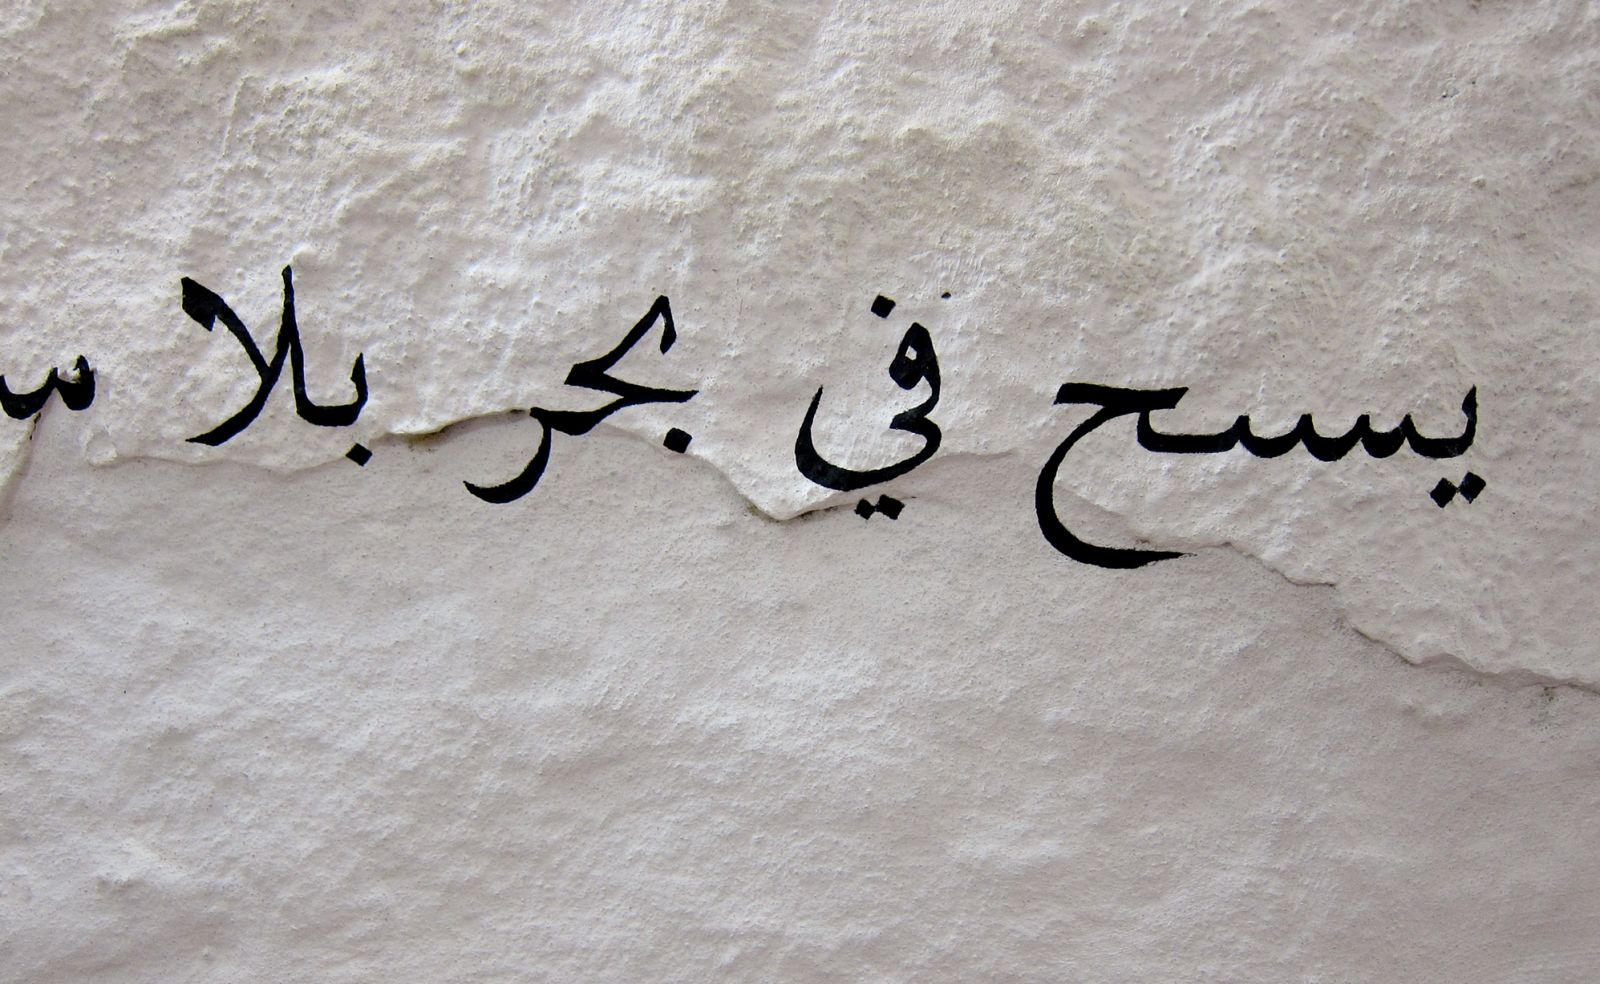 يسبح في بحر بلا